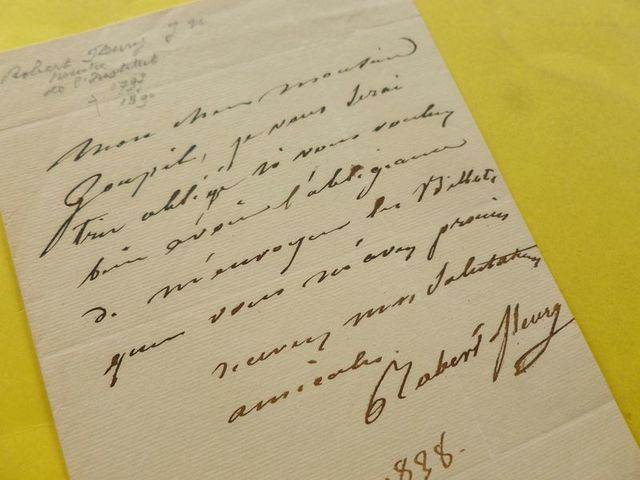 Robert Fleury J N
peintre
de l'Institut
1797
1890
Mon cher monsieur
Goupil, je vous serai
très obligé si vous voulez
bien avoir l'obligeance
de m'envoyer les Billets
que vous m'avez promis
recevez mes Salutations
amicales.
Robert Fleury
1838.